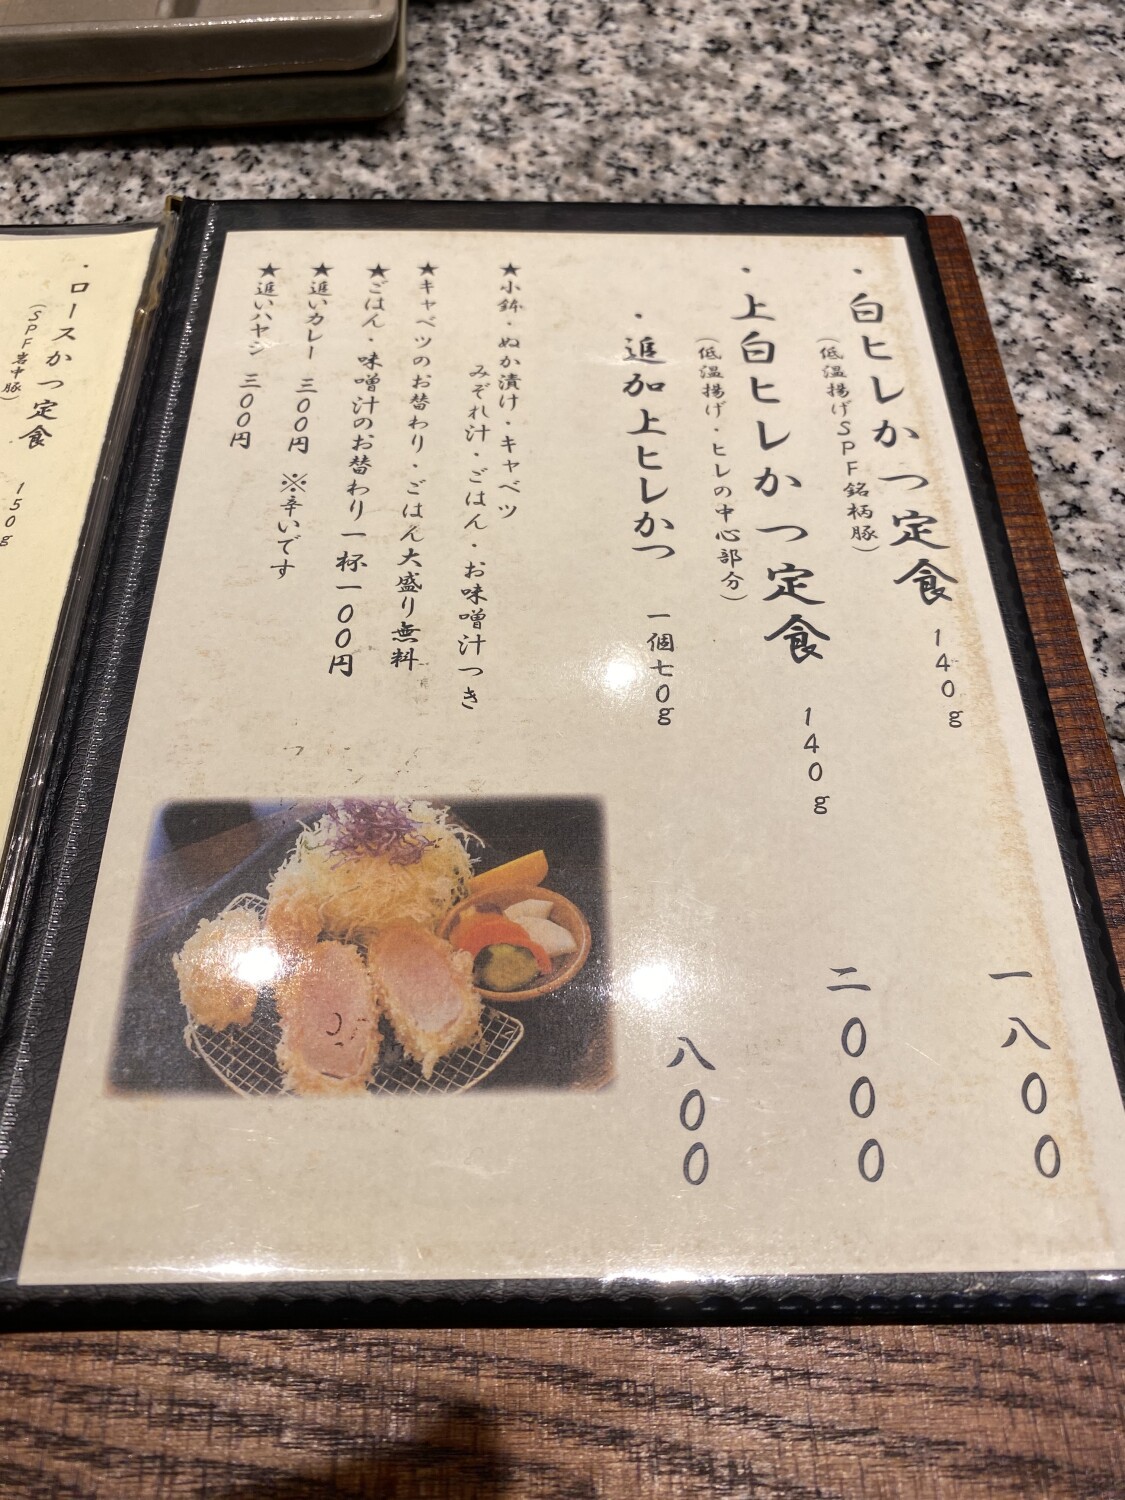 ・白ヒレかつ定食 140g 一八00
(低温揚げSPF銘柄豚)
・上白ヒレかつ定食 140g 二000
(低温揚げ・ヒレの中心部分)
・追加上ヒレかつ 一個七0g 八00
★小鉢・ぬか漬け・キャベツ
みぞれ汁・ごはん・お味噌汁つき
★キャベツのお替わり・ごはん大盛り無料
★ごはん・味噌汁のお替わり一杯一00円
★追いカレー 三00円 ※辛いです
★追いハヤシ 三00円
・ロースかつ定食 150g
(SPF岩中豚)